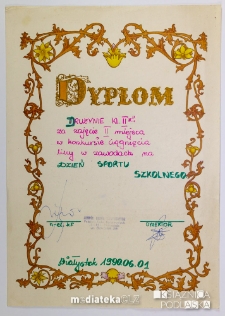 DYPLOM
DRUŻYNIE KL II
za zajęcie II miejsca
w konkursie ciągnięcia
liny w zawodach na
DZIEŃ SPORTU
SZKOLNEGO
DYREKTOR
Białystok 1990.06.01
mediateka
KSIĄŻNICA
PODLASKA